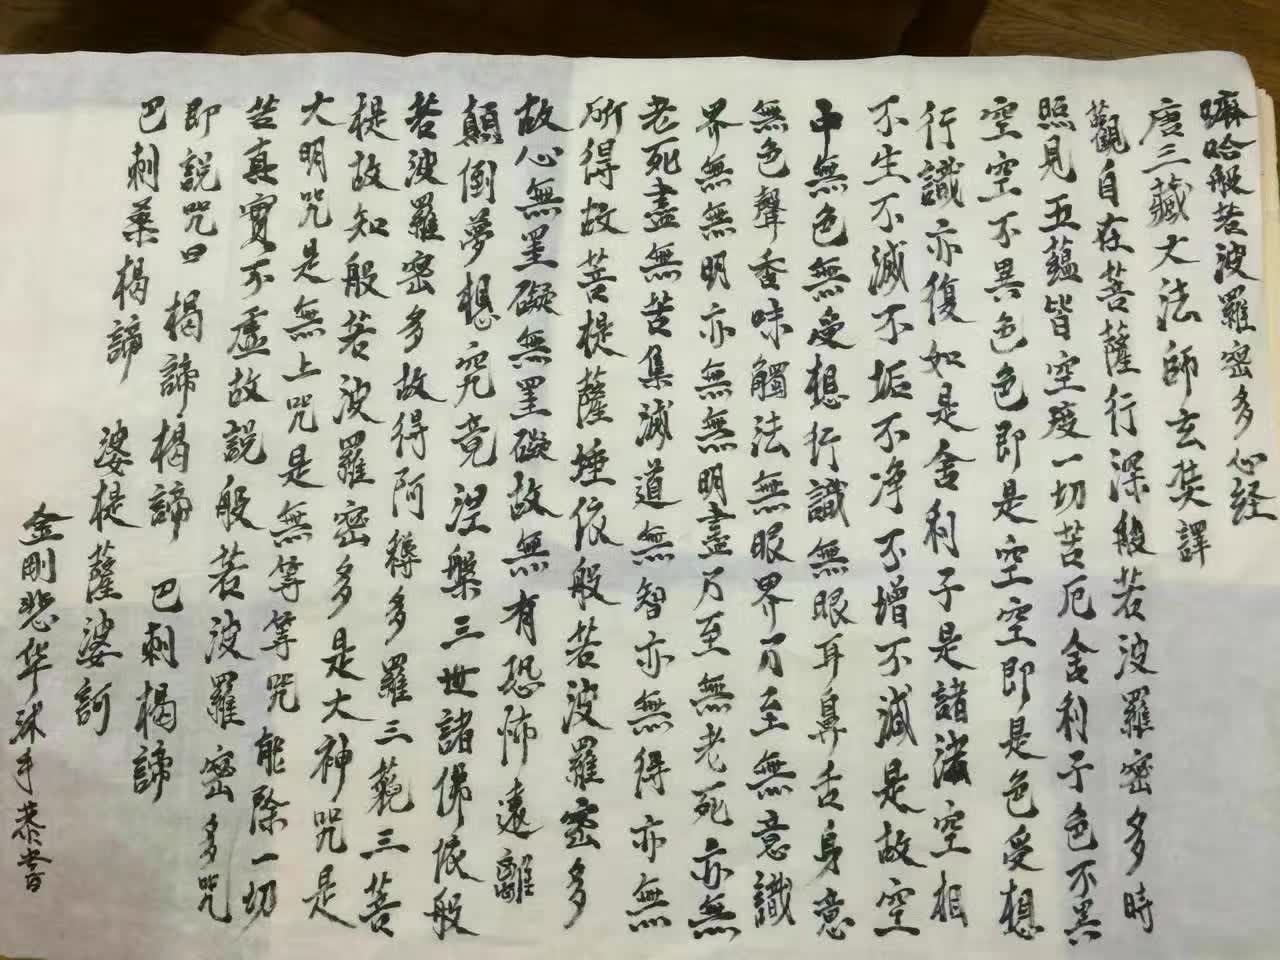 嘛哈般若波羅密多心经
唐三藏大法師玄奘譯
觀自在菩薩行深般若波羅密多時
照見五蘊皆空度一切苦厄舍利子色不異
空空不異色色即是空空即是色受想
行識亦復如是舍利子是諸法空相
不生不滅不垢不净不增不減是故空
中無色無受想行識無眼耳鼻舌身意
無色聲香味觸法無眼界乃至無意識
界無無明亦無無明盡乃至無老死亦無
老死盡無苦集滅道無智亦無得亦無
所得故菩提薩埵依般若波羅密多
故心無罣礙無罣礙故無有恐怖遠離
顛倒夢想究竟涅槃三世諸佛依般
若波羅密多故得阿耨多羅三藐三菩
提故知般若波羅密多是大神咒是
大明咒是無上咒是無等等咒能除一切
苦真實不虛故説般若波羅密多咒
即説咒曰 揭諦揭諦 巴刺揭諦
巴刺葉揭諦 婆提薩婆訶
金剛悲华沐手恭書